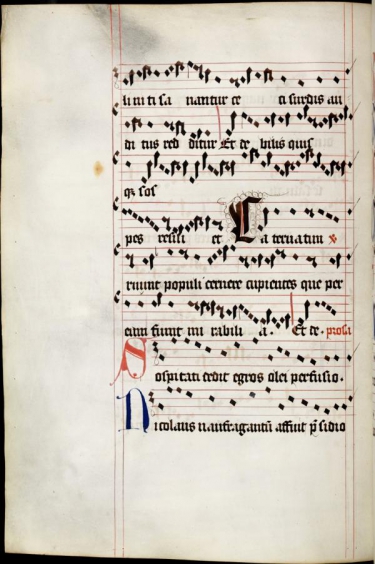 lim ti sa nantur ce ti surdis au
di tus red ditur Et de bilis quis
q sos
pes resili et Ca teruatim x
ruunt populi cernere cupientes que per
eum fiunt mi rabili a. Et de. prosa
Sospitati dedit egros olei perfusio.
Nicolaus naufragantū affuit p̄sidio